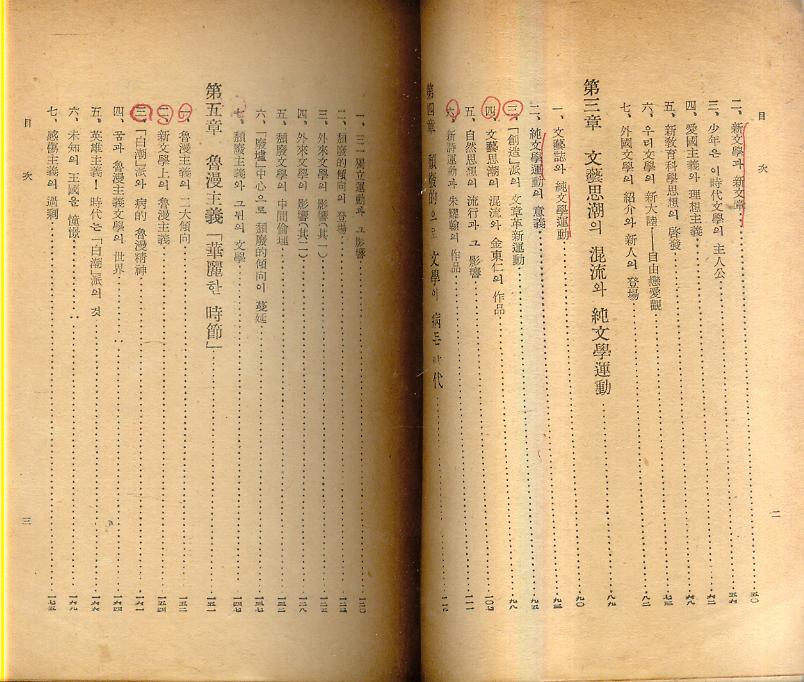 目次
二、新文學과 新文章 五〇
三、少年은 이 時代文學의 主人公
四、愛國主義와 理想主義
五、新敎育科學思想의 啓發
六、우리文學의 新大陸——自由戀愛觀
七、外國文學의 紹介와 新人의 登場
第三章 文藝思潮의 混流와 純文學運動
一、文藝誌와 純文學運動
二、純文學運動의 意義
三、「創造」派의 文章革新運動
四、文藝思潮의 混流와 金東仁의 作品
五、自然思想의 流行과 그 影響
六、新詩運動과 朱耀翰의 作品
二
第四章 頹廢的으로 文學이 病든 時代
一、三一獨立運動과 그 影響
二、頹廢的傾向의 登場
三、外來文學의 影響(其一)
四、外來文學의 影響(其二)
五、頹廢文學의 中間倫理
六、「廢墟」中心으로 頹廢的傾向이 蔓延
七、頹廢主義와 그뒤의 文學
第五章 魯漫主義「華麗한 時節」
一、魯漫主義의 二大傾向
二、新文學上의 魯漫主義
三、「白潮」派와 病的 魯漫精神
四、꿈과 魯漫主義文學의 世界
五、英雄主義! 時代는「白潮」派의 것
六、未知의 王國을 憧憬
七、感傷主義의 過剩
目次
三